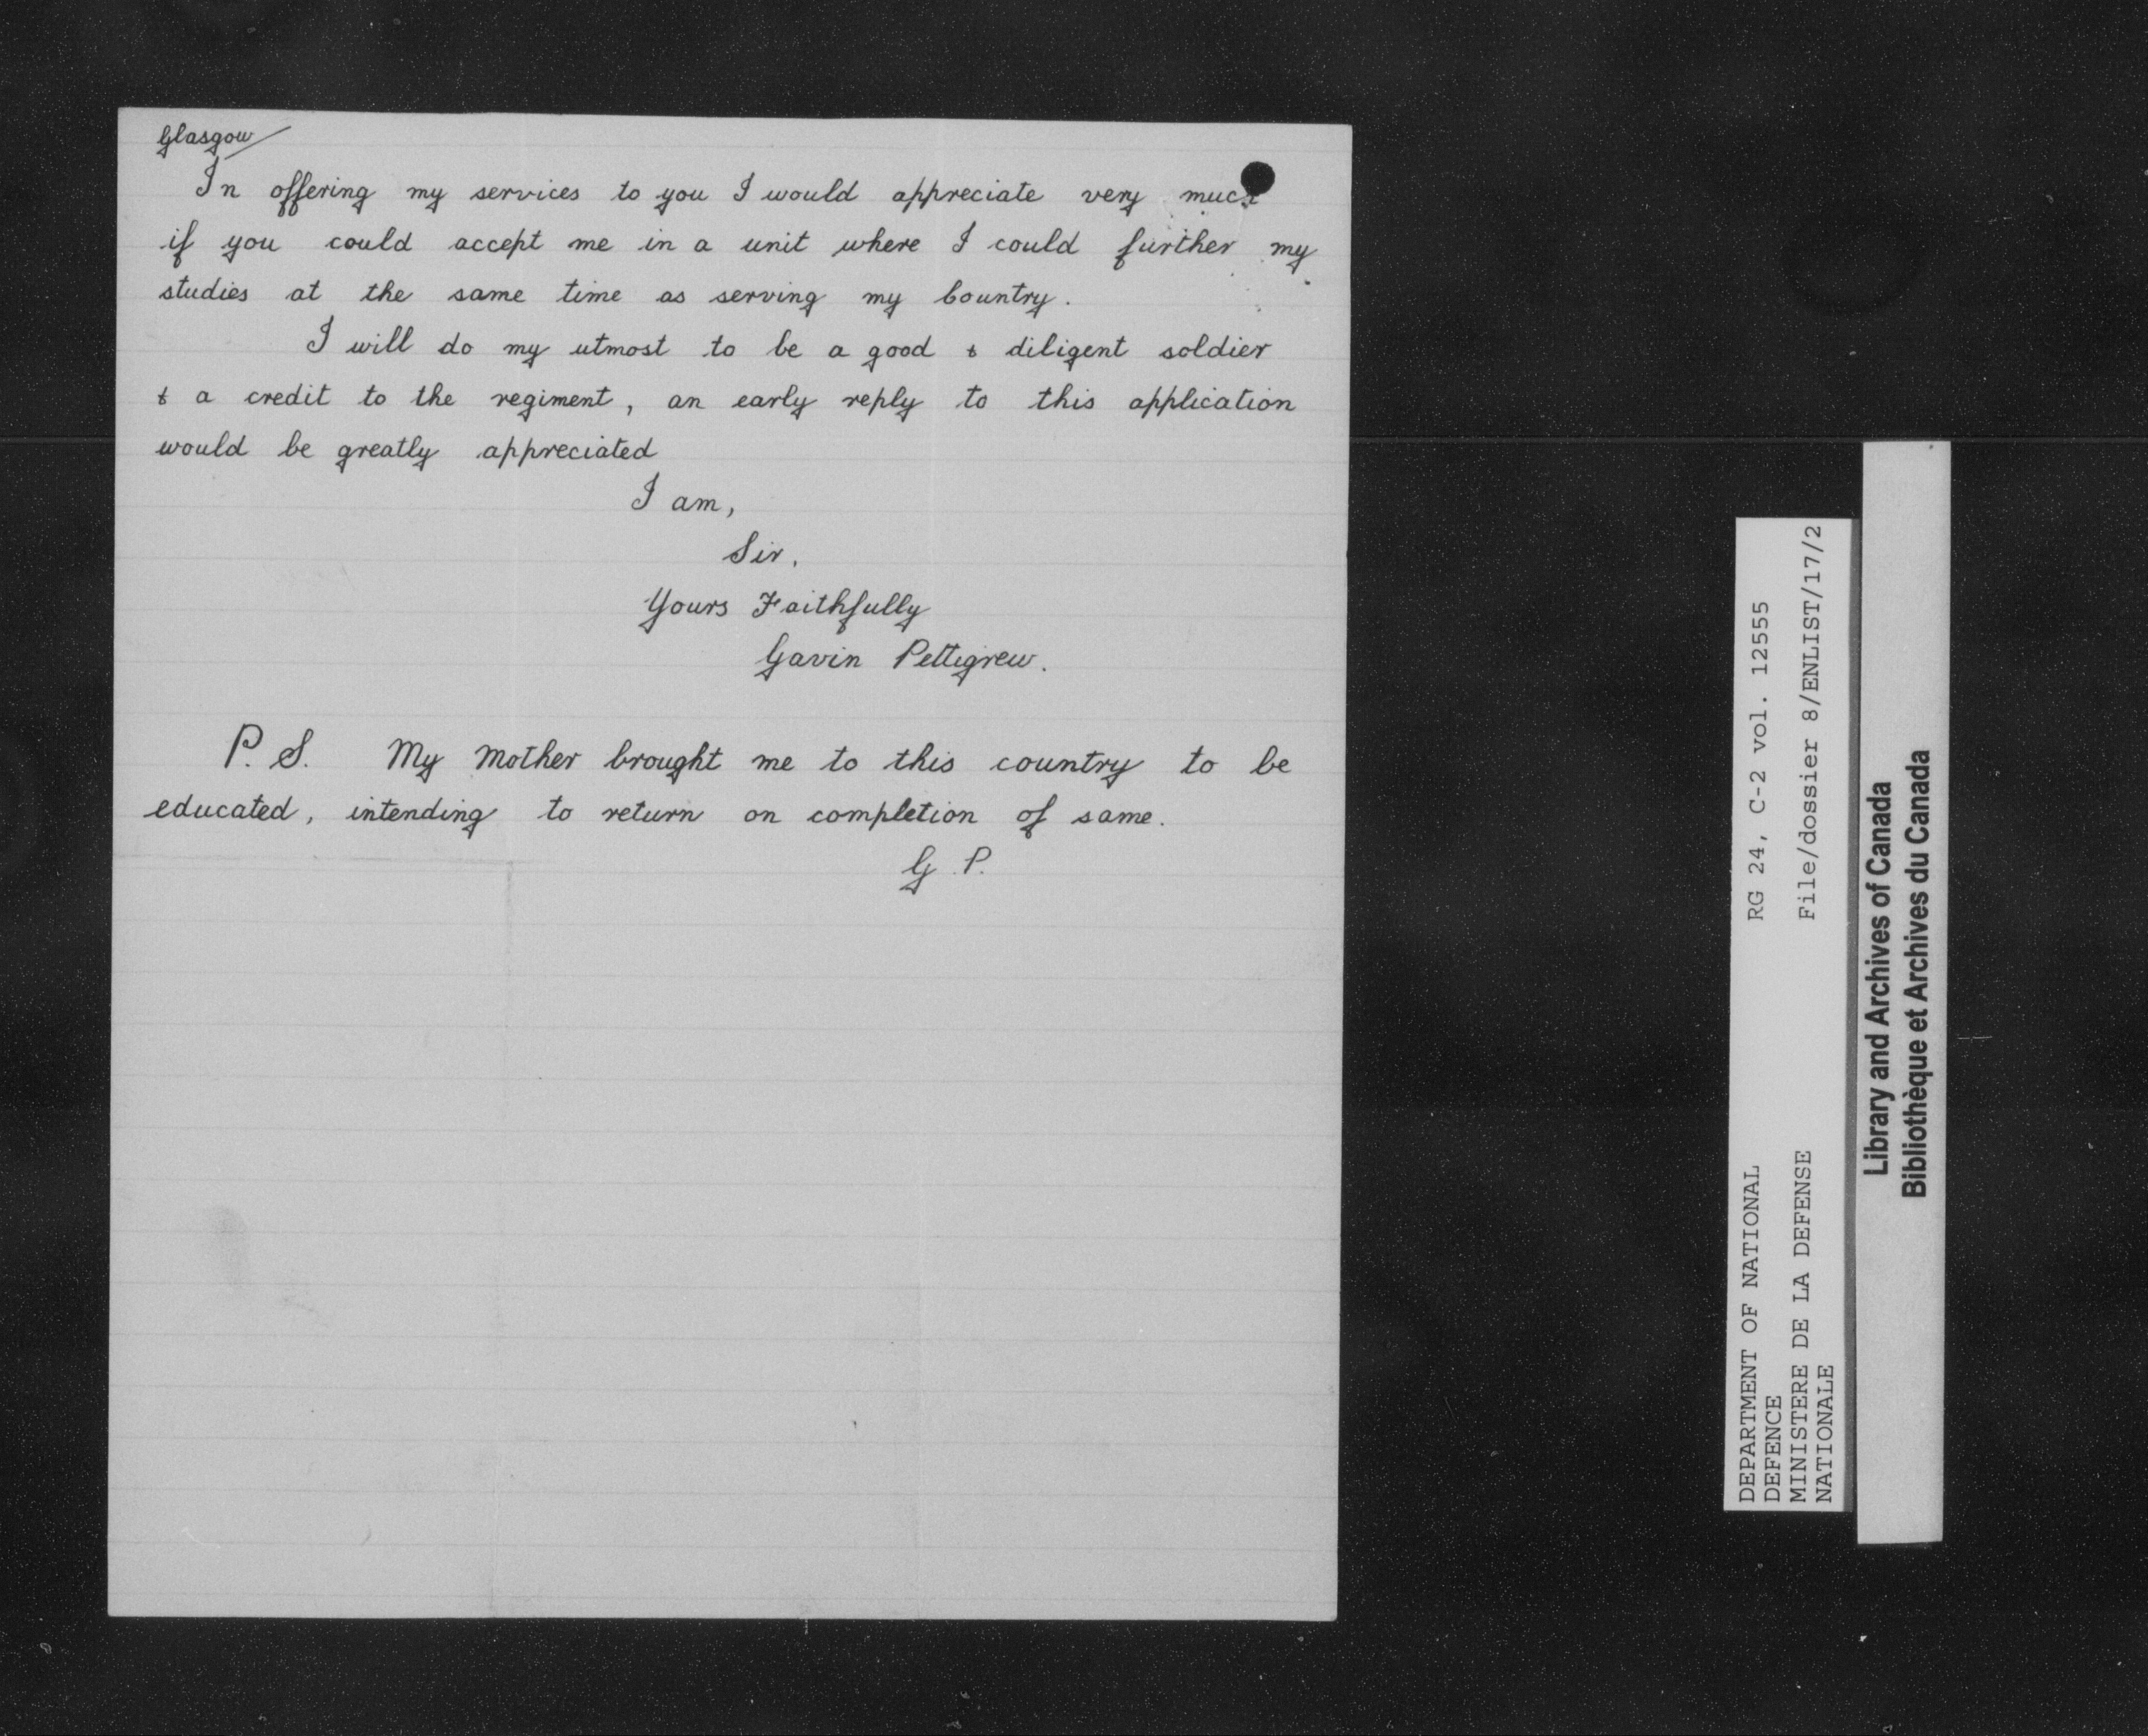 Glasgow
In offering my services to you I would appreciate very much
if you could accept me in a unit where I could further my
studies at the same time as serving my Country.
I will do my utmost to be a good & diligent soldier
& a credit to the regiment, an early reply to this application
would be greatly appreciated
I am,
Sir,
Yours Faithfully
Gavin Pettigrew.
P. S. My Mother brought me to this country to be
educated, intending to return on completion of same.
G. P.
DEPARTMENT OF NATIONAL
DEFENCE
MINISTERE DE LA DEFENSE
NATIONALE
RG 24, C-2 vol. 12555
File/dossier 8/ENLIST/17/2
Library and Archives of Canada
Bibliothèque et Archives du Canada